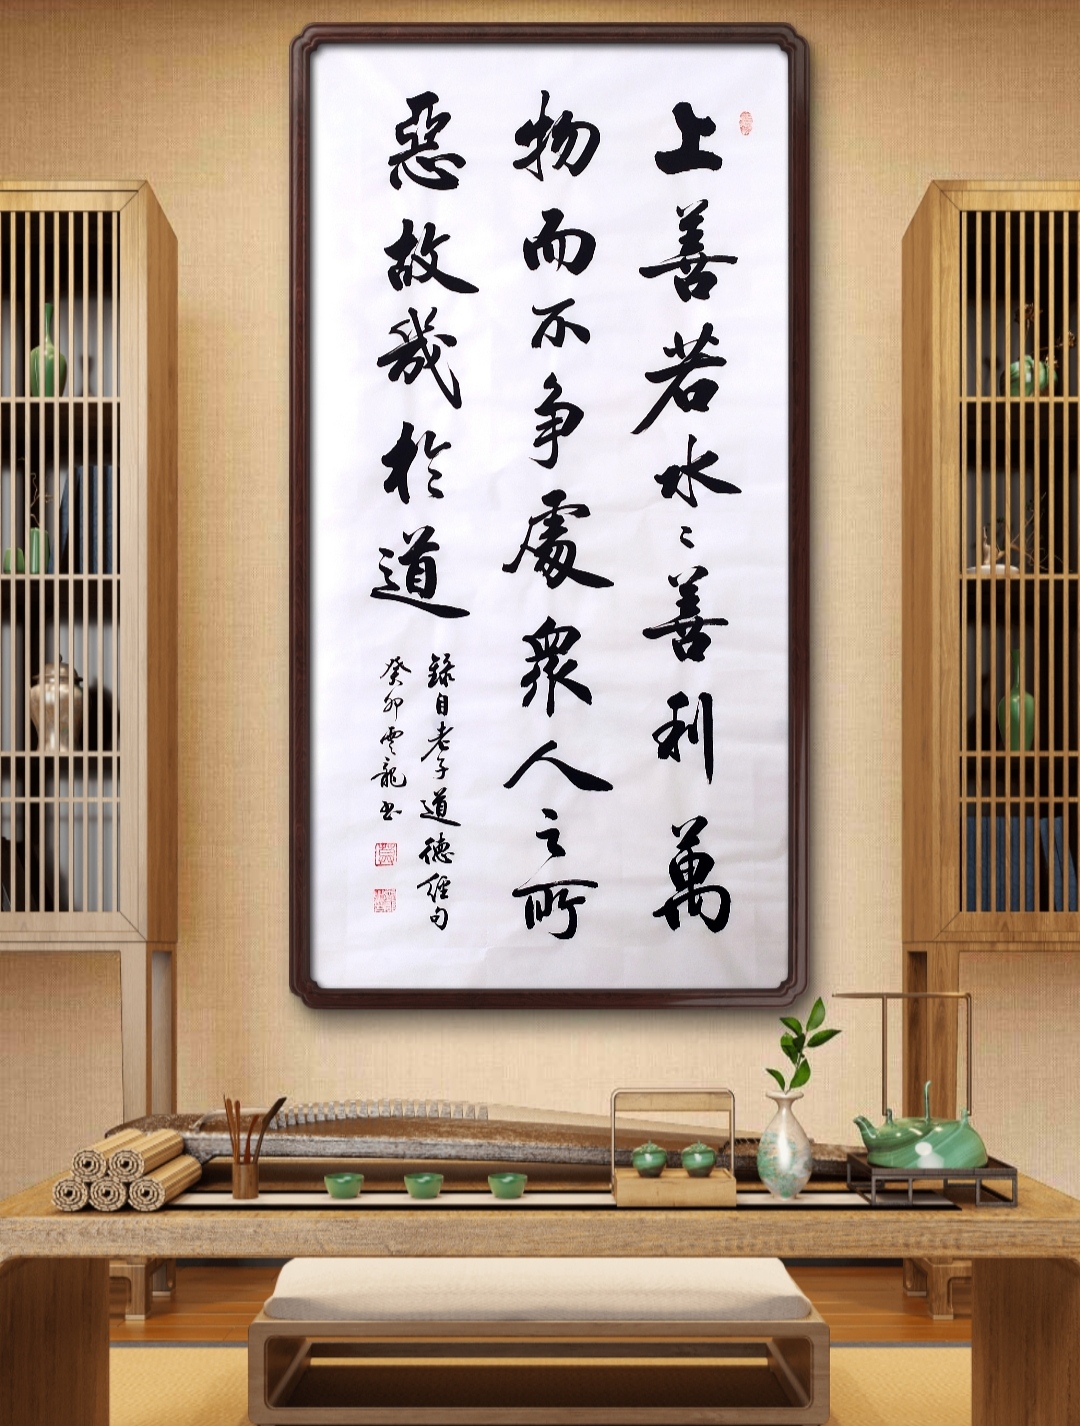 上善若水〻善利萬
物而不争處衆人之所
惡故幾於道
録自老子道德經句
癸卯雲龍书